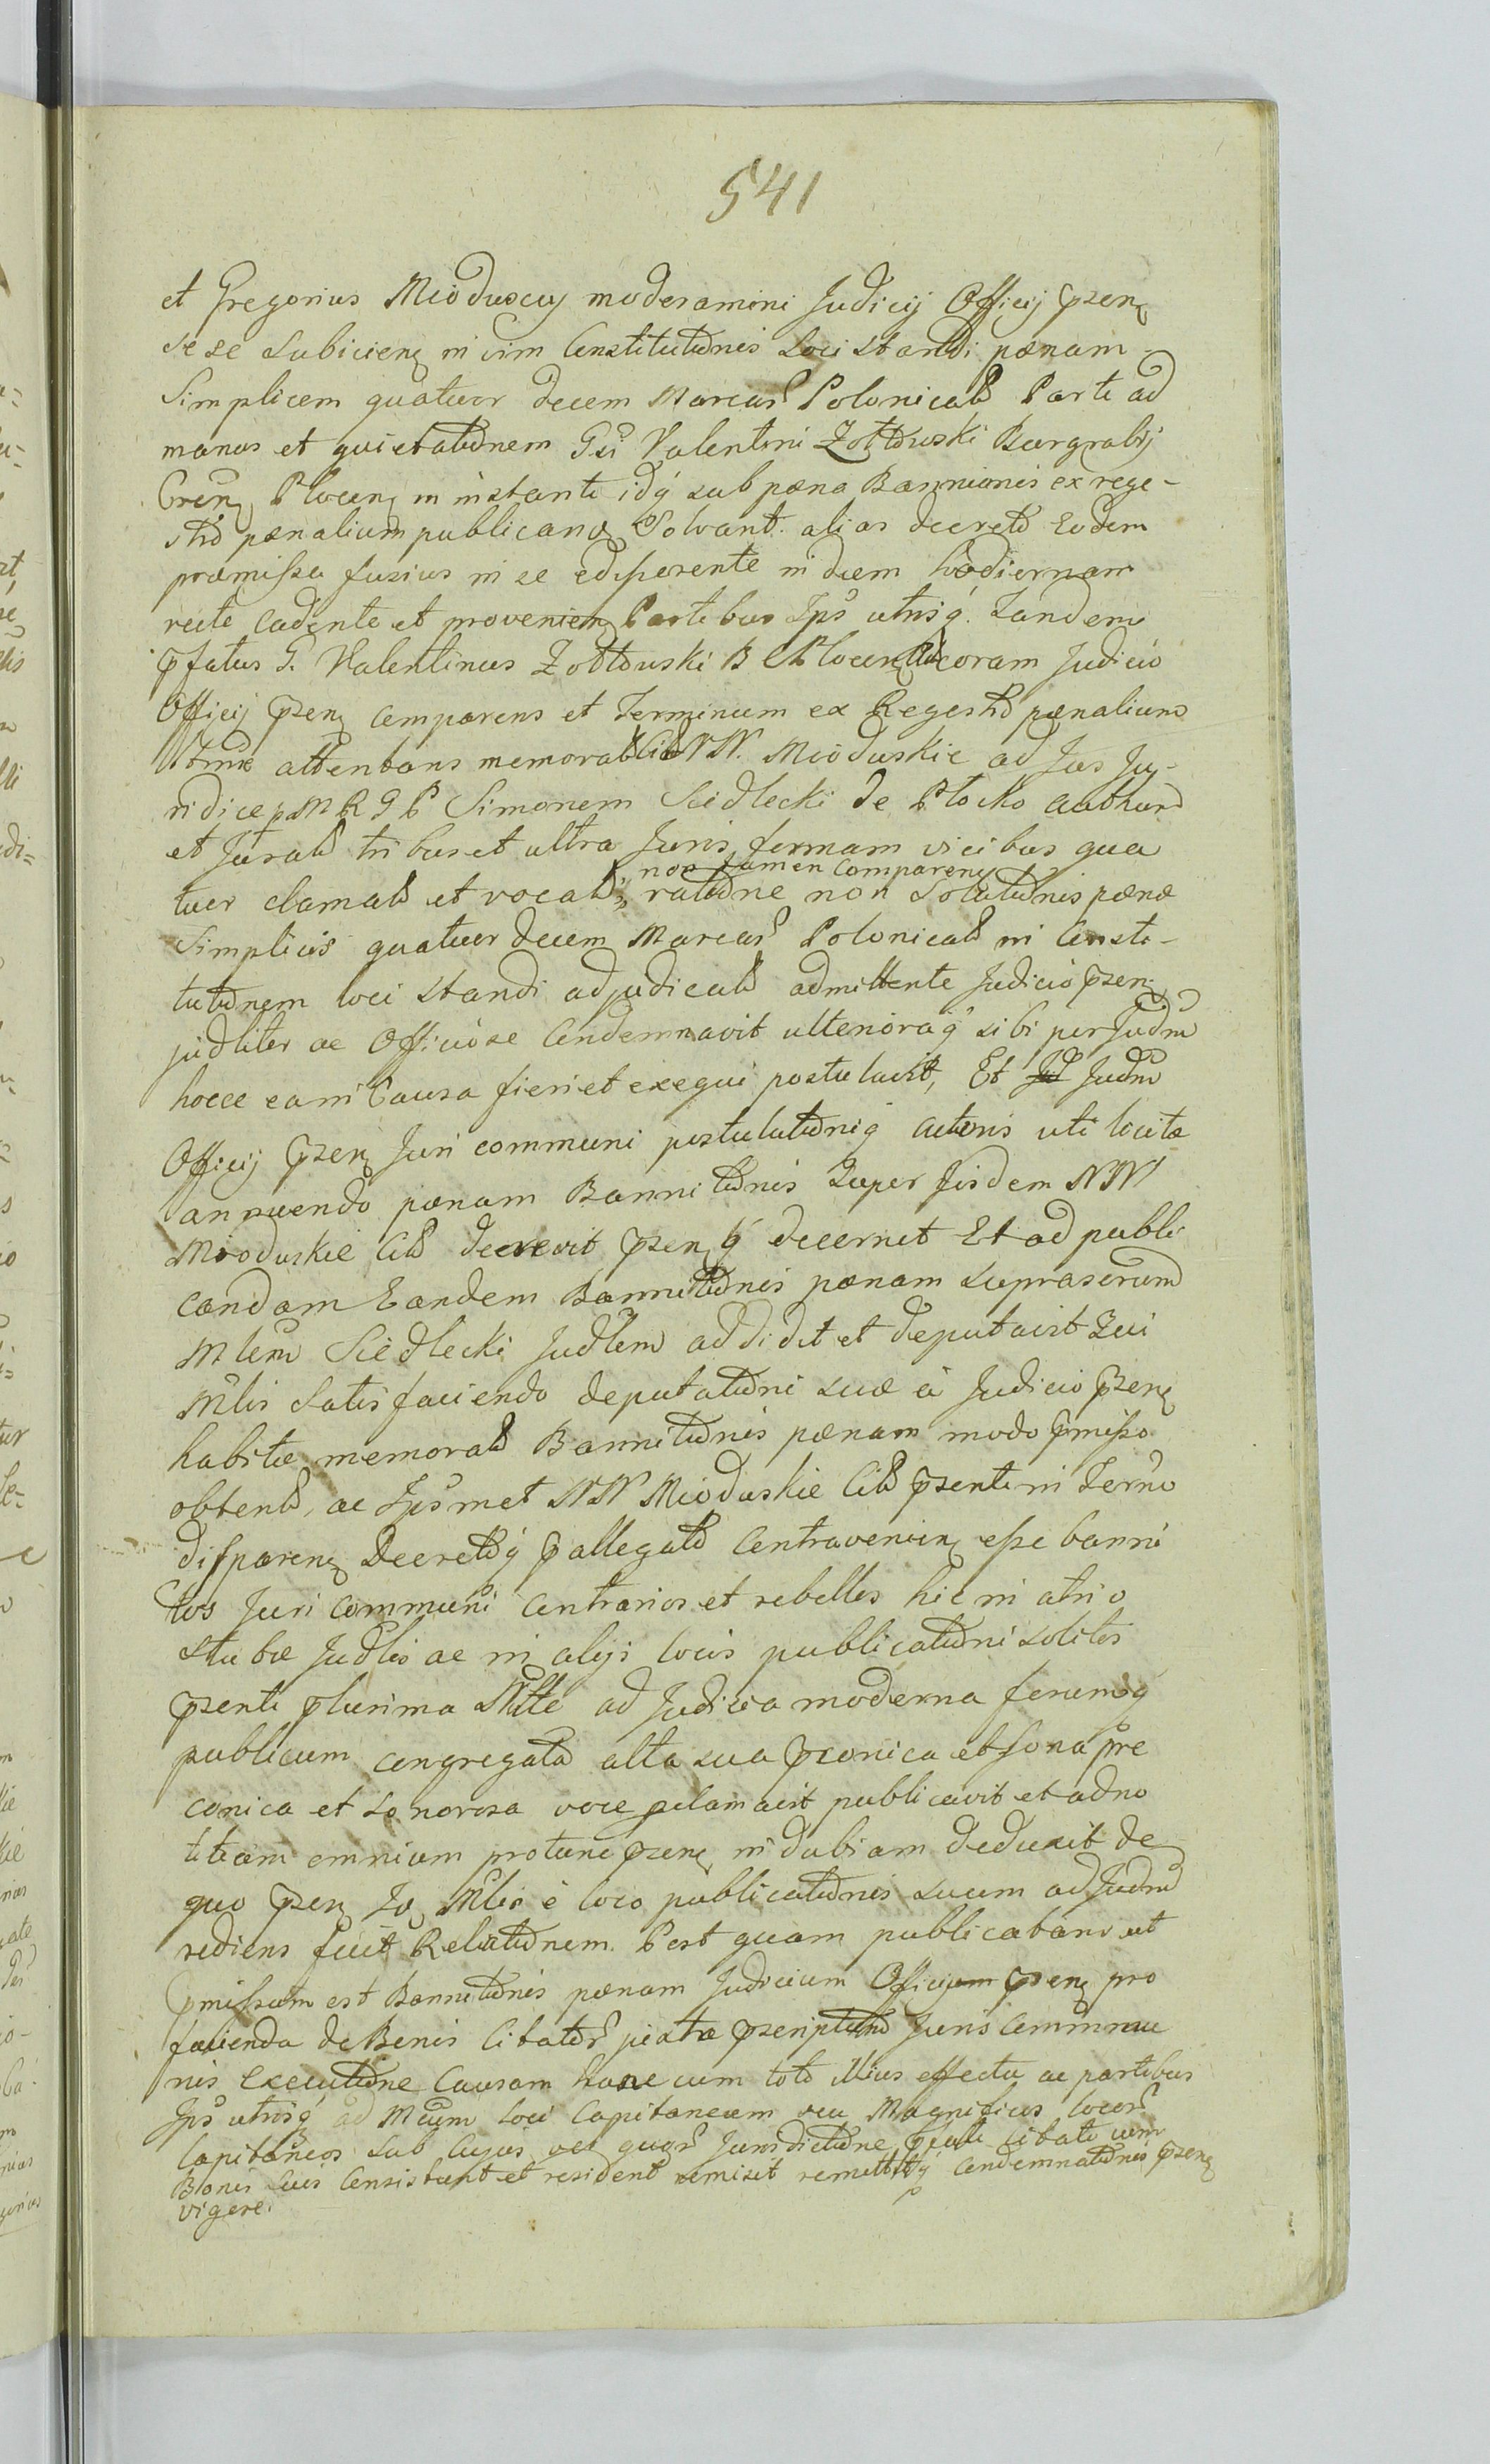 541
et Gregorius Mioduscy moderamini Judicij Officij pzen
sese subicien in vim Constitutnis loci standi pænam
Simplicem quatuor decem Marcar Polonical Parti ad
manus et quietatnem Gsi Valentini Zołtowski Burgrabij
Cren Plocen in instanti idq sub pæna Bannionis ex rege-
stro pænalium publicanda Solvant. alias decreto eodem
præmissa fusius in se edisserente in diem hodiernam
recte cadente et provenien Partibus Ips utrisq. Tandem
pfatus G. Valentinus Zołtowski B C Plocen coram Judicio
Officij pzen comparens et Terminum ex Regestro pænalium
attentans memorat Citat NN. Mioduskie ad Jus Ju-
ridice p M R G P Simonem Siedlecki de Płocko authen
et Jurat tribus et ultra Juris formam vicibus qua
non tamen comparen
tuor clamat et vocat, ratne non Solutnis pænæ
Simplicis quatuor decem Marcar Polonical in Consti-
tutnem loci standi adjudicat admittente Judicio pzen
judliter ac Officiose Condemnavit ulterioraq sibi per Judm
hocce ea in Causa fieri et exequi postulavit, Et Judm
Officij pzen Juri communi postulatniq Actoris uti licitæ
annuendo pænam Bannitnis Super Eisdem NN
Mioduskie Citt decrevit pzen q decernit Et ad publi
candam Eandem Bannitnis pænam suprascrum
Mlem Siedlecki Judlem addidit et deputavit Qui
Mlis satisfaciendo deputatni suæ a Judicio pzen
habitæ memorat Bannitnis pænam modo pmisso
obtent, ac Ipsmet NN Mioduskie Citt pzenti in Termo
disparen Decretoq pallegato Contravenien esse banni
tos Juri communi contrarios et rebelles hic in atrio
stubæ Judlis ac in alijs locis publicatni solitis
pzenti plurima Nltte ad Judicia moderna forumq
publicum congregata alta sua pconica et sona pre
conica et sonorosa voce pclamavit publicavit et ad no
titiam omnium protunc pzen indubiam deduxit de
quo pzen Mlis e loco publicatnis suum ad Judm
rediens fecit Relatnem. Post quam publicatam ut
pmissum est Bannitnis pænam Judicium Officijum pzen pro
facienda de Bonis Citator juxta pscriptum Juris Commu
nis Executne Causam hanc cum toto illius effectu ac partibus
Ips utrisq ad Mcum loci Capitaneum seu Magnificos locor
Capitaneos sub cujus vel quor Jurisdictne pfati citati cum
Bonis suis Consistunt et resident remisit remittitq Condemnatnis pzen
vigore.